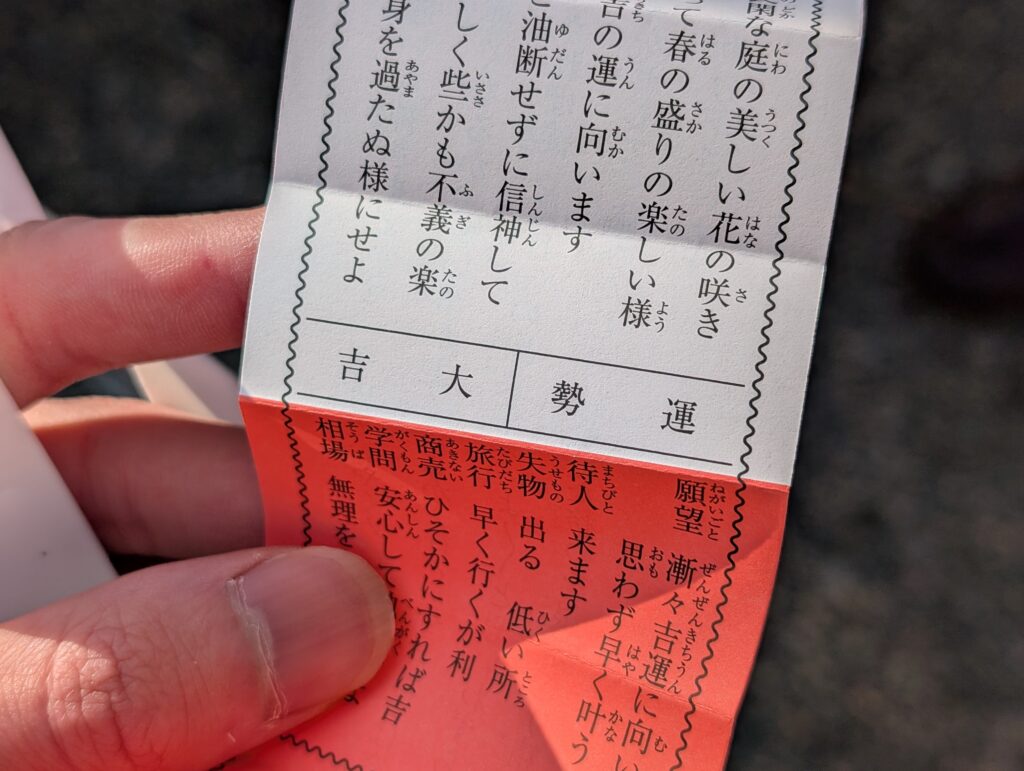 な庭の美しい花の咲き
て春の盛りの楽しい様
吉の運に向います
油断せずに信神して
しく些かも不義の楽
身を過たぬ様にせよ
運勢 大吉
願望 漸々吉運に向い
思わず早く叶う
待人 来ます
失物 出る 低い所
旅行 早く行くが利
商売 ひそかにすれば吉
学問 安心して
相場 無理を